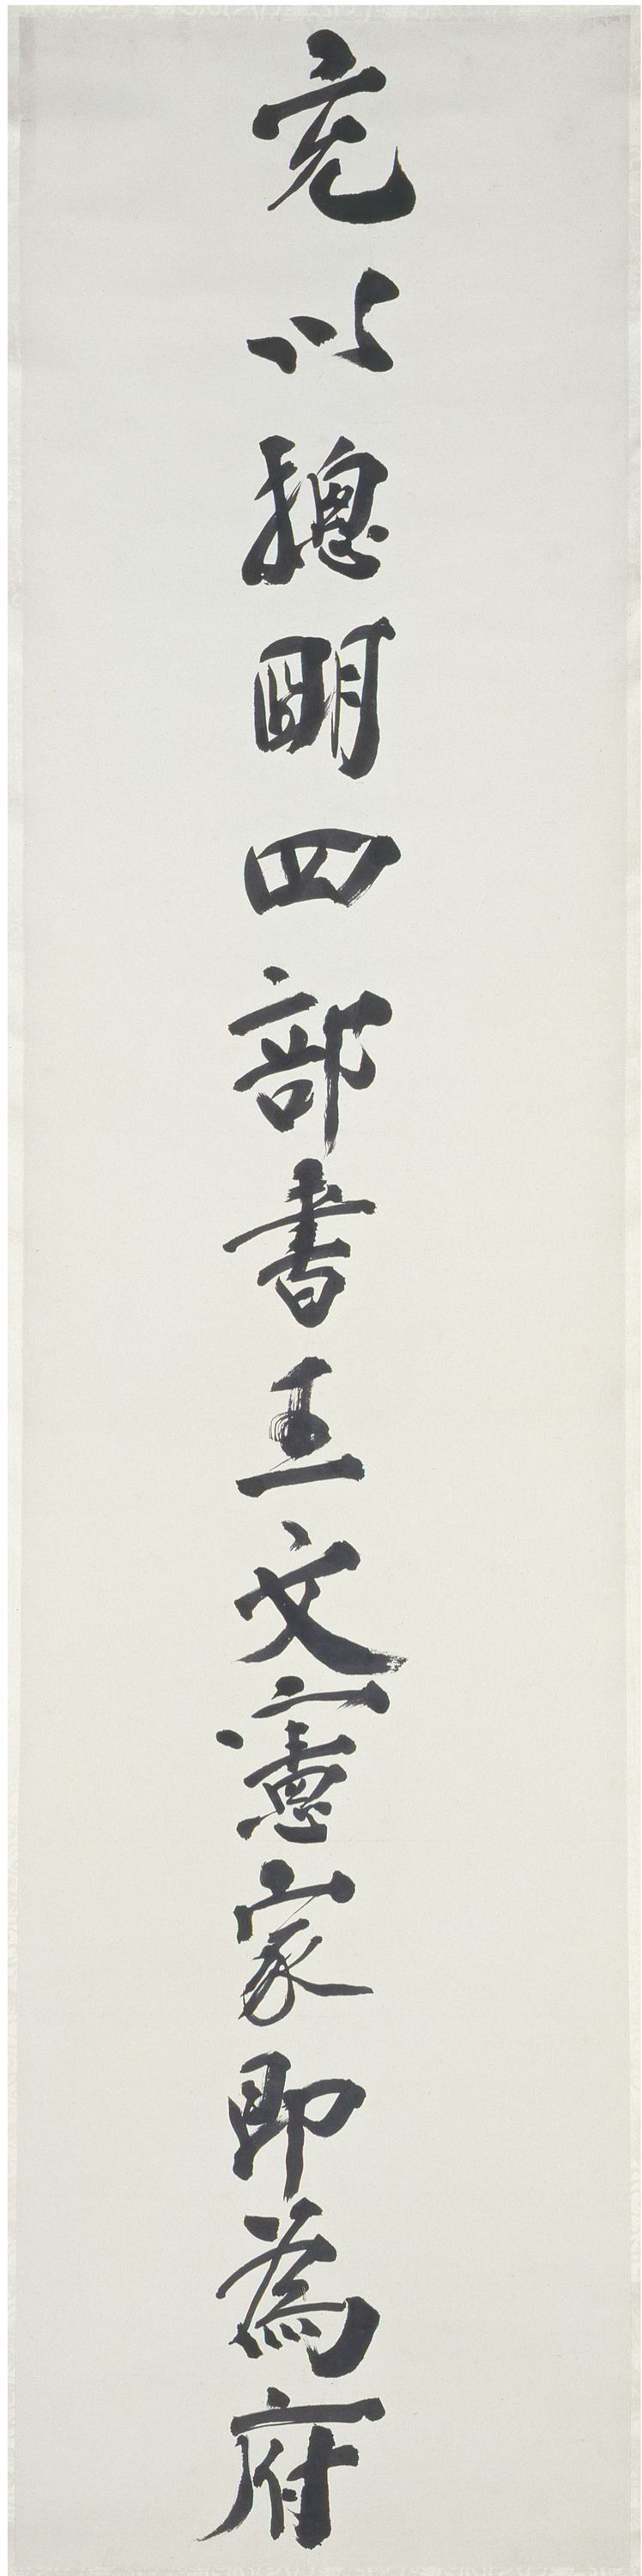 充以聰明四部書王文憲家即為府